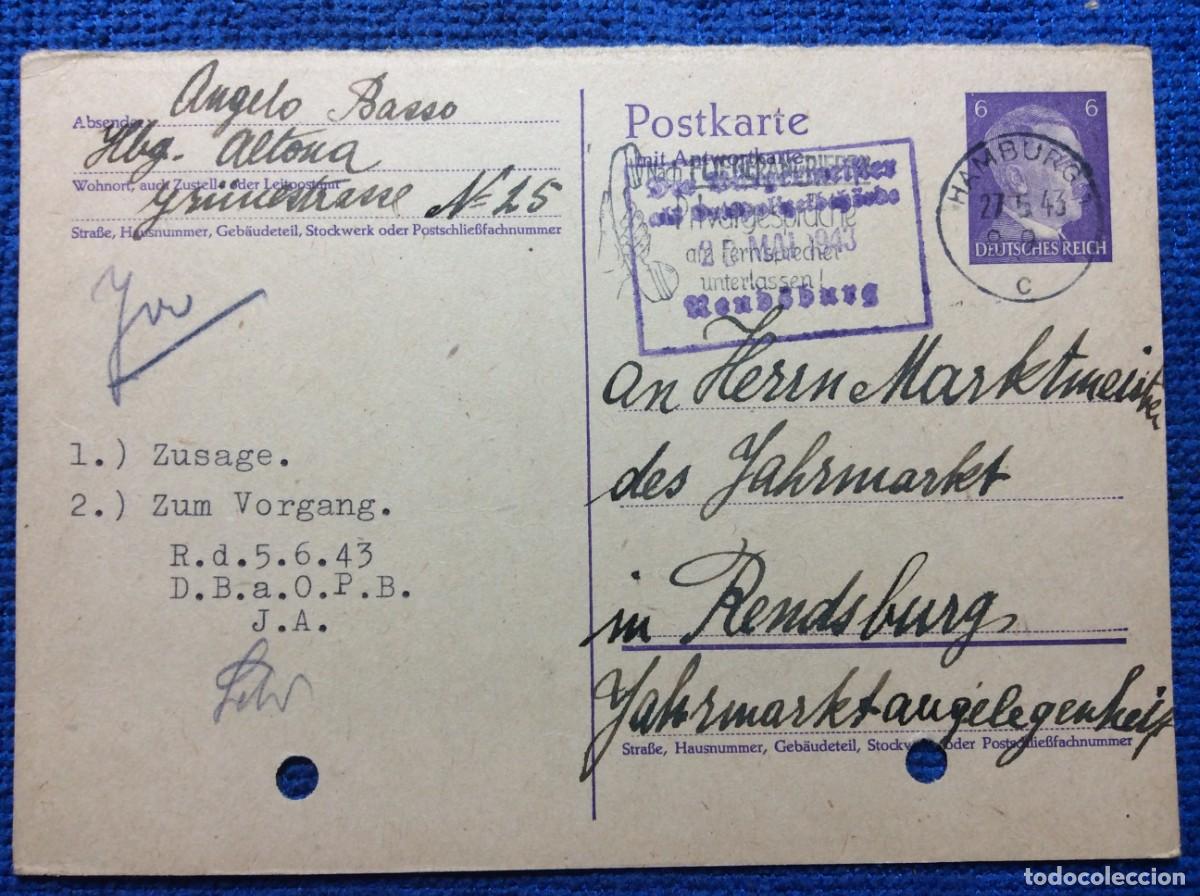 Angelo Basso
Absender:
Hbg. Altona
Wohnort, auch Zustell- oder Leitpostamt
Grünestrasse № 25
Straße, Hausnummer, Gebäudeteil, Stockwerk oder Postschließfachnummer
1.) Zusage.
2.) Zum Vorgang.
R.d.5.6.43
D.B.a.O.P.B.
J.A.
Postkarte
mit Antwortkarte
Nach FLIEGERANGRIFFEN
Privatgespräche
am Fernsprecher
unterlassen!
Der Bürgermeister
als Ortspolizeibehörde
MAI 1943
Rendsburg
6 6
DEUTSCHES REICH
HAMBURG
27.5.43
c
An Herrn Marktmeister
des Jahrmarkt
in Rendsburg
Jahrmarktangelegenheit
Straße, Hausnummer, Gebäudeteil, Stockwerk oder Postschließfachnummer
todocoleccion